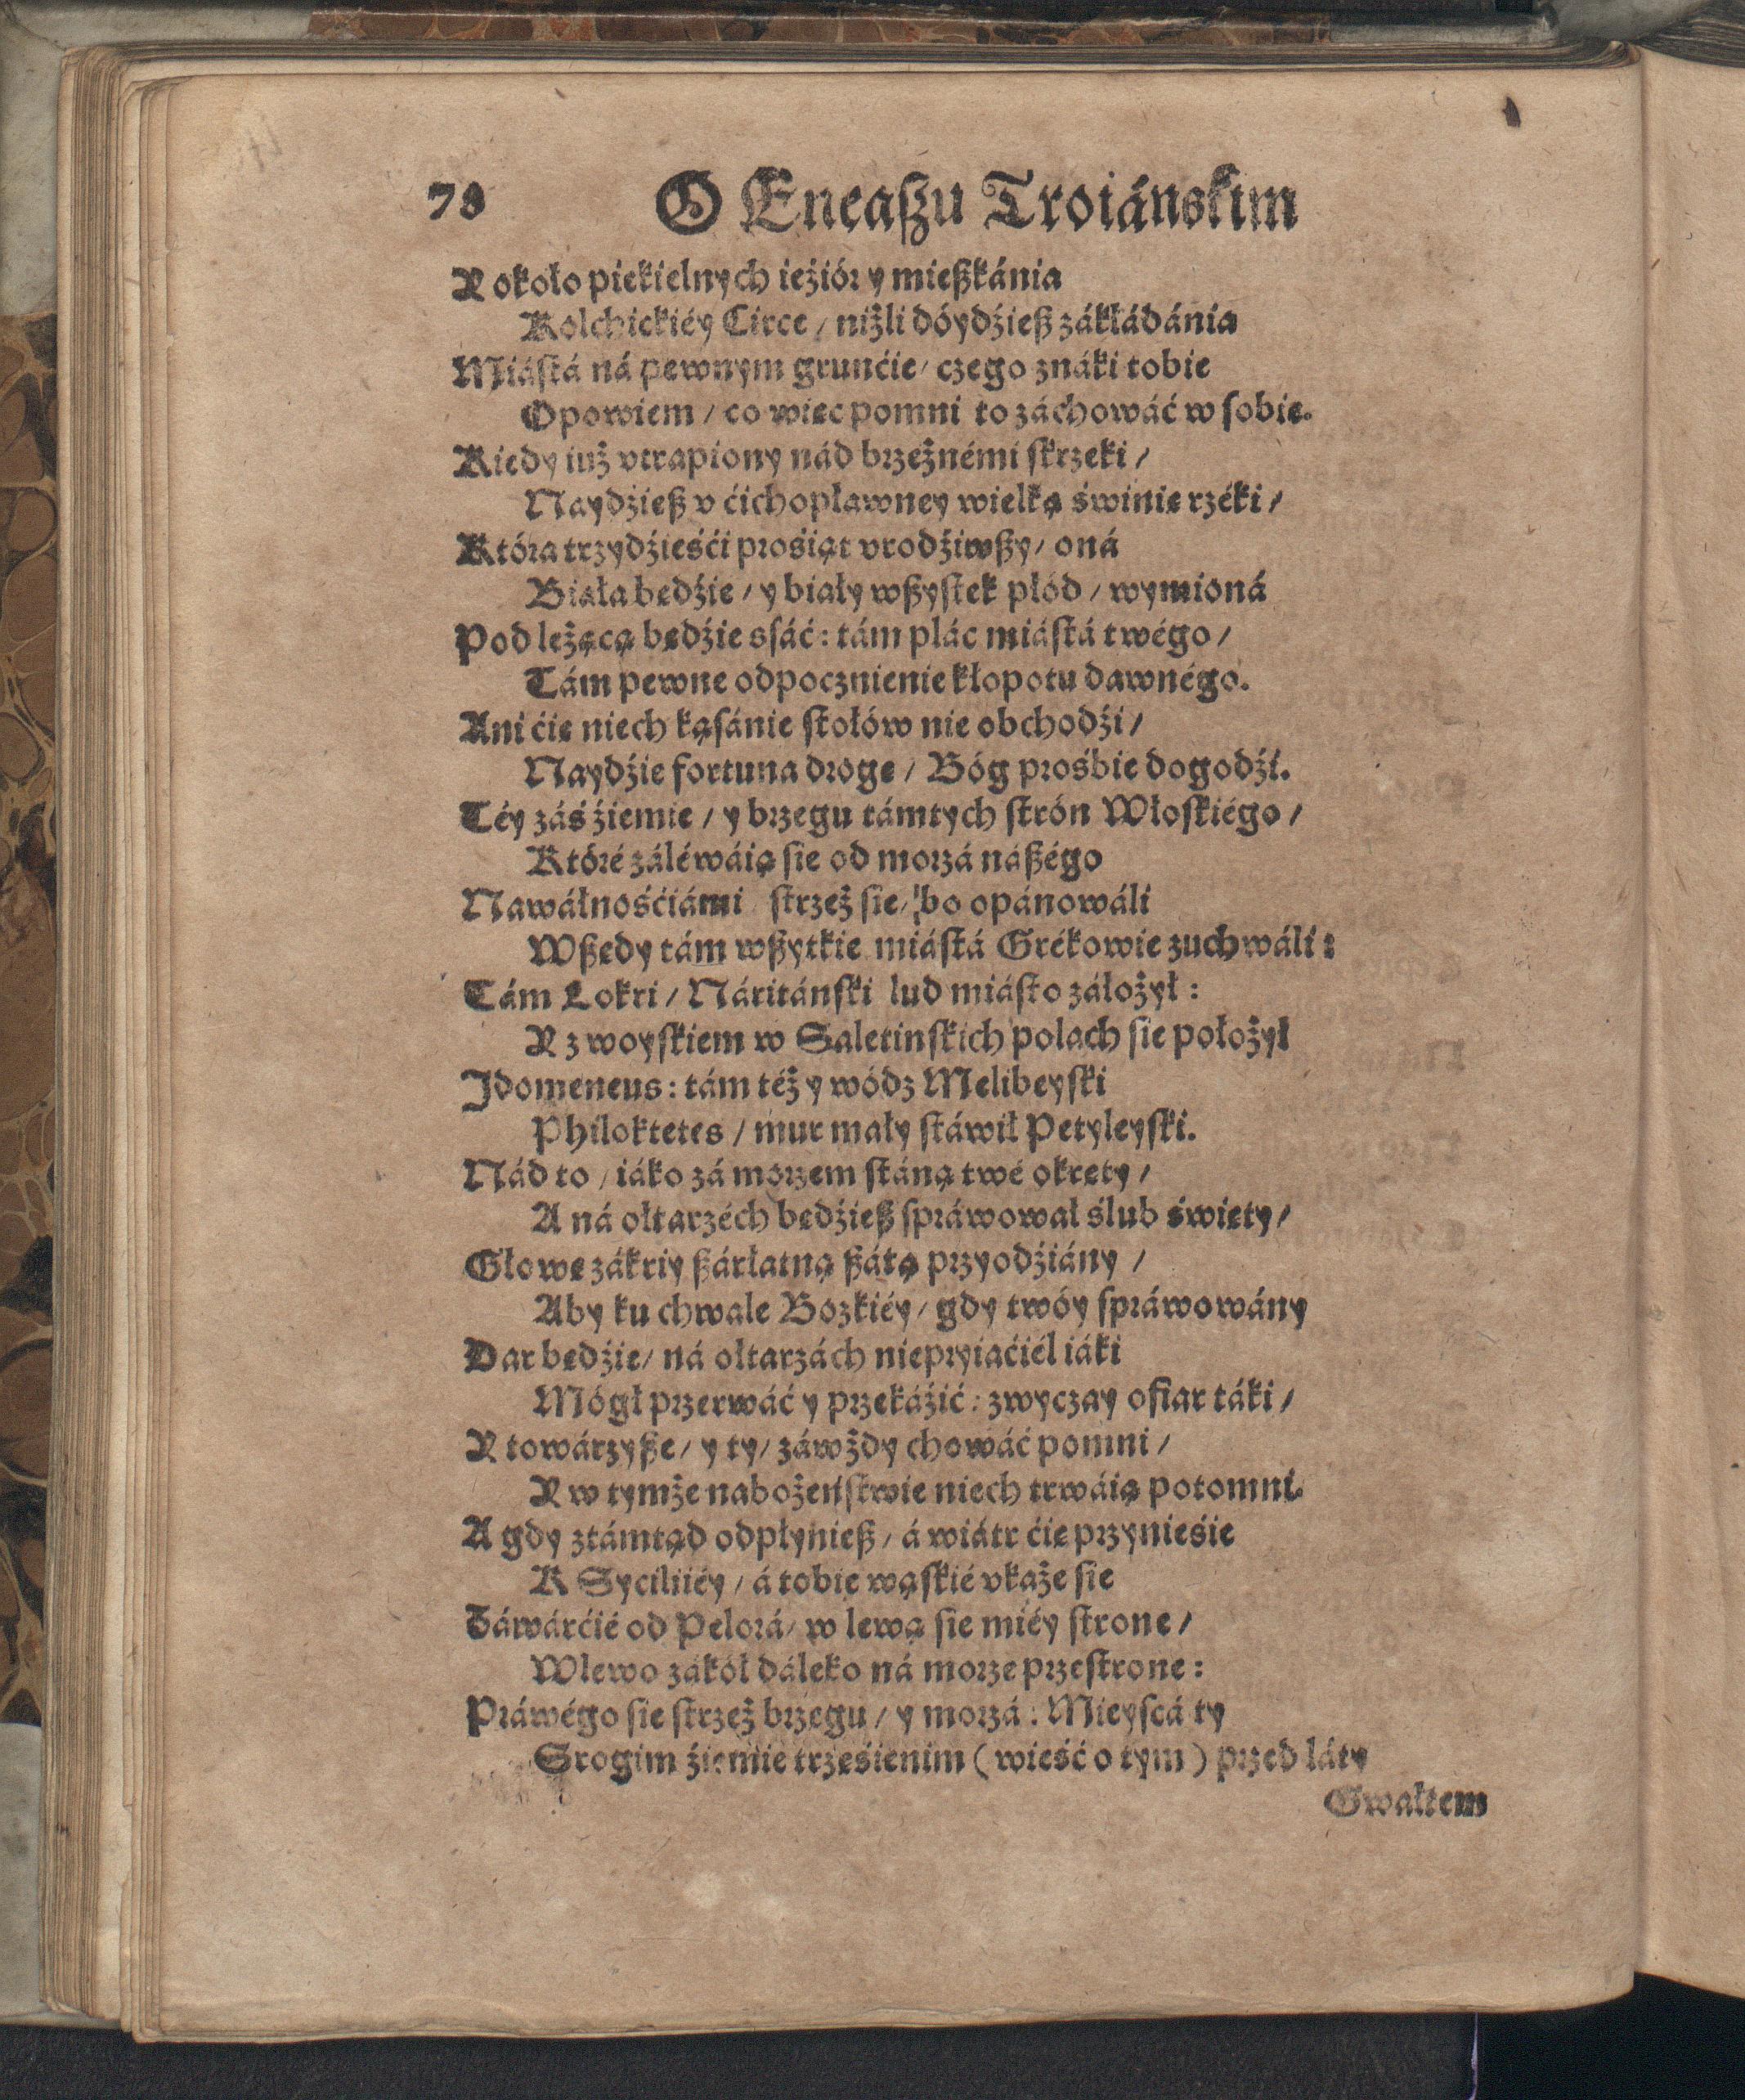 78 O Eneaſzu Troiánskim
Y około piekielnych ieźiór y mießkánia
Kolchickiéy Circe / niżli dóydźieß zákłádánia
Miáſtá ná pewnym grunćie / czego znáki tobie
Opowiem / co więc pomni to záchowáć w ſobie.
Kiedy iuż vtrapiony nád brzeżnémi ſkrzeki /
Naydźieß v ćichopławney wielką świnię rzéki /
Która trzydźieśći prośiąt vrodźiwßy / oná
Biała będźie / y biały wßyſtek płód / wymioná
Pod leżącą będźie sſáć: tám plác miáſtá twégo /
Tám pewne odpocznienie kłopotu dawnégo.
Ani ćię niech kąſánie ſtołów nie obchodźi /
Naydźie fortuna drogę / Bóg prośbie dogodźi.
Téy záś źiemie / y brzegu támtych ſtrón Włoſkiégo /
Któré záléwáią ſie od morzá náßégo
Nawáłnośćiámi ſtrzeż ſie / bo opánowáli
Wßędy tám wßytkie miáſtá Grékowie zuchwáli:
Tám Lokri / Náritánſki lud miáſto záłożył:
Y z woyſkiem w Saletinſkich polach ſie położył
Idomeneus: tám téż y wódz Melibeyſki
Philoktetes / mur mały ſtáwił Petyleyſki.
Nád to / iáko zá morzem ſtáną twé okręty /
A ná ołtarzéch będźieß ſpráwował ślub święty /
Głowę zákriy ßárłatną ßátą przyodźiány /
Aby ku chwale Bozkiéy / gdy twóy ſpráwowány
Dar będźie / ná ołtarzách niepryiaćiél iáki
Mógł przerwáć y przekáźić: zwyczay ofiar táki /
Y towárzyße / y ty / záwżdy chowáć pomni /
Y w tymże nabożeńſtwie niech trwáią potomni.
A gdy ztámtąd odpłynieß / á wiátr ćię przynieśie
K Syciliiéy / á tobie wąſkié vkaże ſie
Záwárćié od Pelorá / w lewą ſie miéy ſtronę /
W lewo zákół dáleko ná morze przeſtrone:
Práwégo ſie ſtrzeż brzegu / y morzá: Mieyſcá ty
Srogim źiemie trzęśienim (wieść o tym) przed láty
Gwałtem